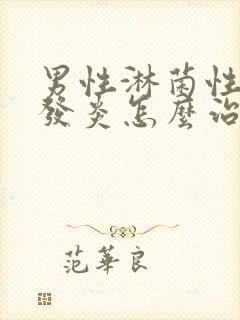 男性淋菌性
發炎怎麼治
范華良